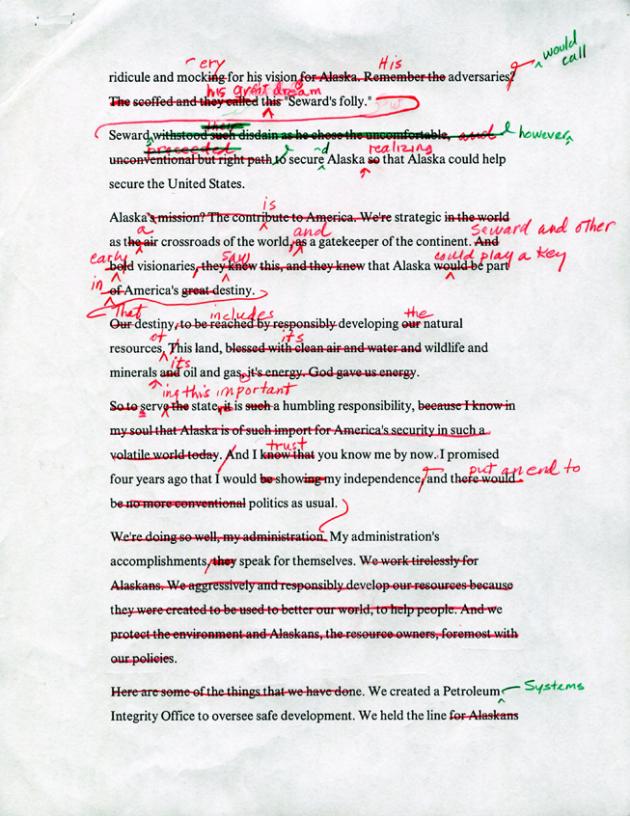 ery His would
call
ridicule and mocking for his vision for Alaska. Remember the adversaries?
his great dream
The scoffed and they called this "Seward's folly."
their
Seward withstood such disdain as he chose the uncomfortable, and however,
preceeded d realizing
unconventional but right path to secure Alaska so that Alaska could help
secure the United States.
is
Alaska's mission? The contribute to America. We're strategic in the world
a and Seward and other
as the air crossroads of the world, as a gatekeeper of the continent. And
early saw could play a key
bold visionaries, they knew this, and they knew that Alaska would be part
in
of America's great destiny.
That includes the
Our destiny, to be reached by responsibly developing our natural
of its
resources. This land, blessed with clean air and water and wildlife and
its
minerals and oil and gas, it's energy. God gave us energy.
ing this important
So to serve the state, it is such a humbling responsibility, because I know in
my soul that Alaska is of such import for America's security in such a
trust
volatile world today. And I know that you know me by now. I promised
put an end to
four years ago that I would be showing my independence, and there would
be no more conventional politics as usual.
We're doing so well, my administration. My administration's
accomplishments, they speak for themselves. We work tirelessly for
Alaskans. We aggressively and responsibly develop our resources because
they were created to be used to better our world, to help people. And we
protect the environment and Alaskans, the resource owners, foremost with
our policies.
Here are some of the things that we have done. We created a Petroleum Systems
Integrity Office to oversee safe development. We held the line for Alaskans